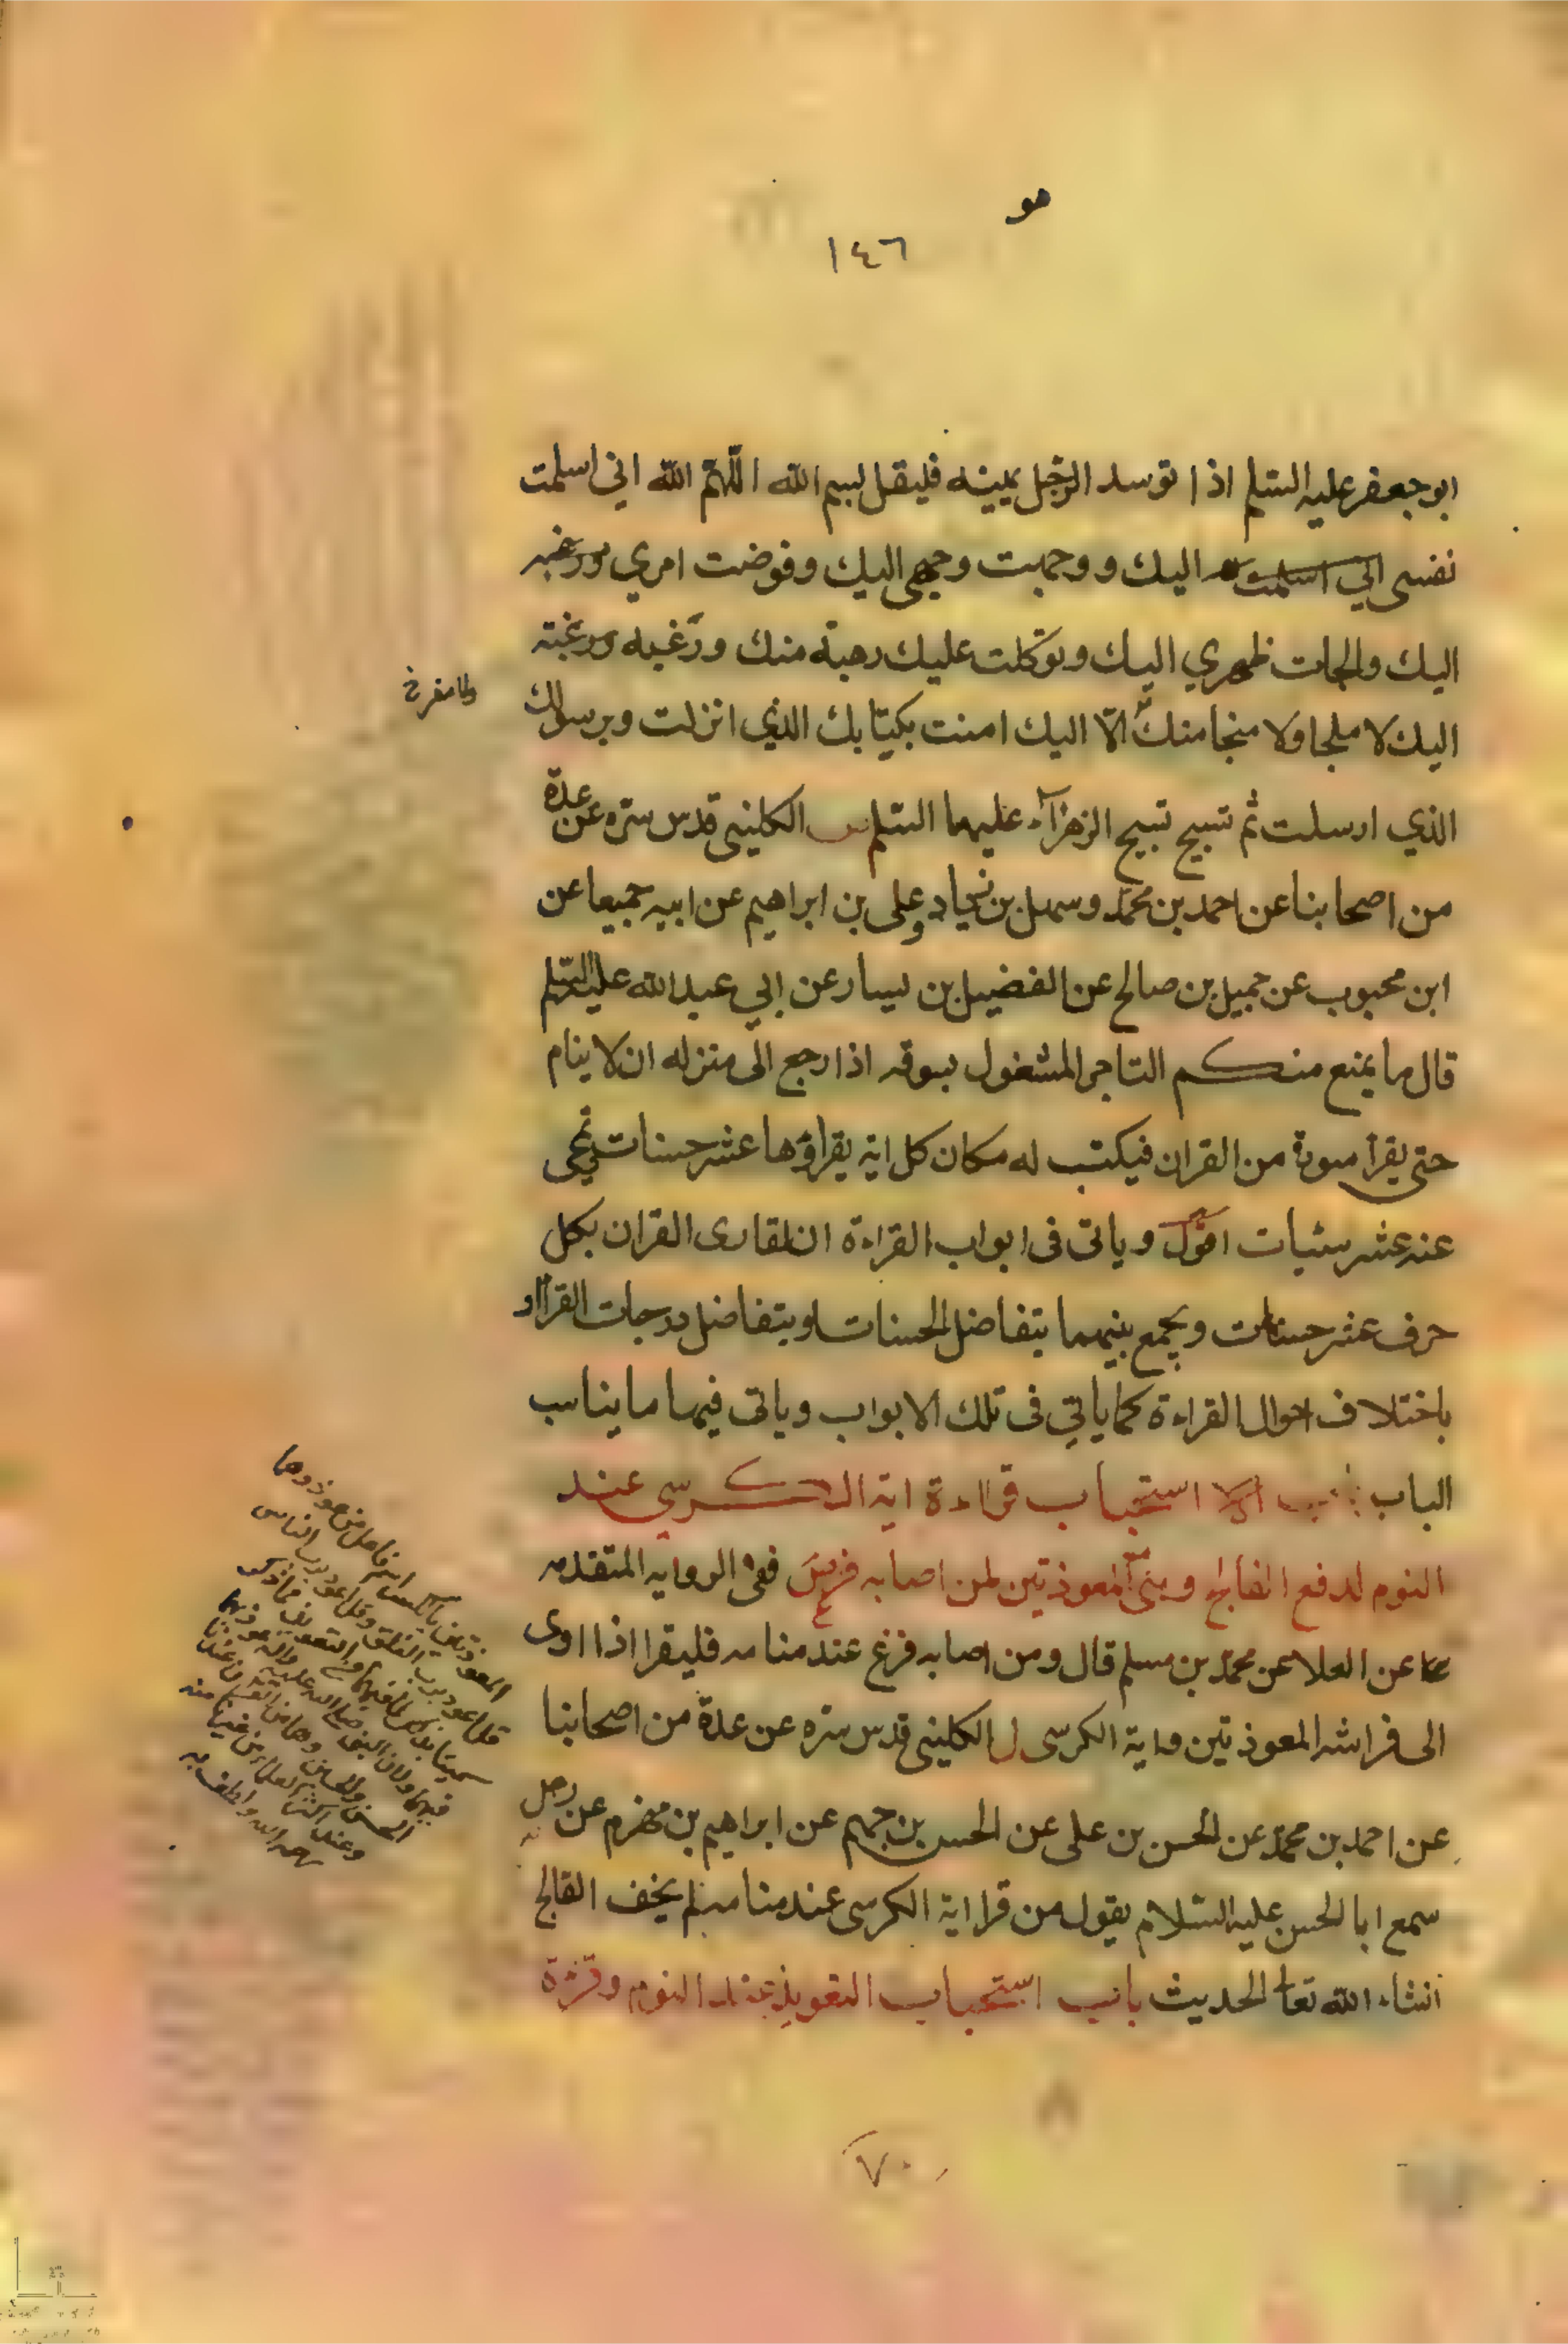 هو
١٤٦
ابو جعفر عليه السلم اذا توسد الرجل يمينه فليقل بسم الله اللّهمّ الله اني اسلمت
نفسى اليك و وجهت وجهي اليك وفوضت امري ورغبه
اليك والجات ظهري اليك وتوكلت عليك رهبة منك ورغبه ورغبته
اليك لا ملجا ولا منجا منك الّا اليك امنت بكتابك الذي انزلت وبرسولك
الذي ارسلت ثم تسبيح تسبيح الزهرآء عليهما السلم الكلينى قدس سره عن عدة
من اصحابنا عن احمد بن محمد وسهل بن زياد وعلى بن ابراهيم عن ابيه جميعا عن
ابن محبوب عن جميل بن صالح عن الفضيل بن يسار عن ابي عبد الله عليه السلم
قال ما يمنع منكم التاجر المشغول بسوقه اذا رجع الى منزله ان لا ينام
حتى يقرأ سورة من القران فيكتب له مكان كل اية يقراؤها عشر حسنات وتمحى
عنه عشر سيئات اقول وياتى فى ابواب القراءة ان لقارى القران بكل
حرف عشر حسنات ويجمع بينهما بتفاضل الحسنات او بتفاضل درجات القراء او
باختلاف احوال القراءة كما ياتي فى تلك الابواب وياتى فيها ما يناسب
الباب باب استحباب قراءة اية الكرسى عند
النوم لدفع الفالج و المعوذتين لمن اصابه فزع ففى الرواية المتقدمه
عن العلا عن محمد بن مسلم قال ومن اصابه فزع عند منامه فليقرا اذا اوى
الى فراشه المعوذتين واية الكرسى ل الكلينى قدس سره عن عدة من اصحابنا
عن احمد بن محمد عن الحسن بن على عن الحسن بن جهم عن ابراهيم بن مهزم عن رجل
سمع ابا الحسن عليه السلام يقول من قرا اية الكرسى عند منامه لم يخف الفالج
انشاء الله تعالى الحديث باب استحباب التعويذ عند النوم وقراءة
المعوذتين
قل اعوذ برب الفلق وقل اعوذ برب الناس
٧٠